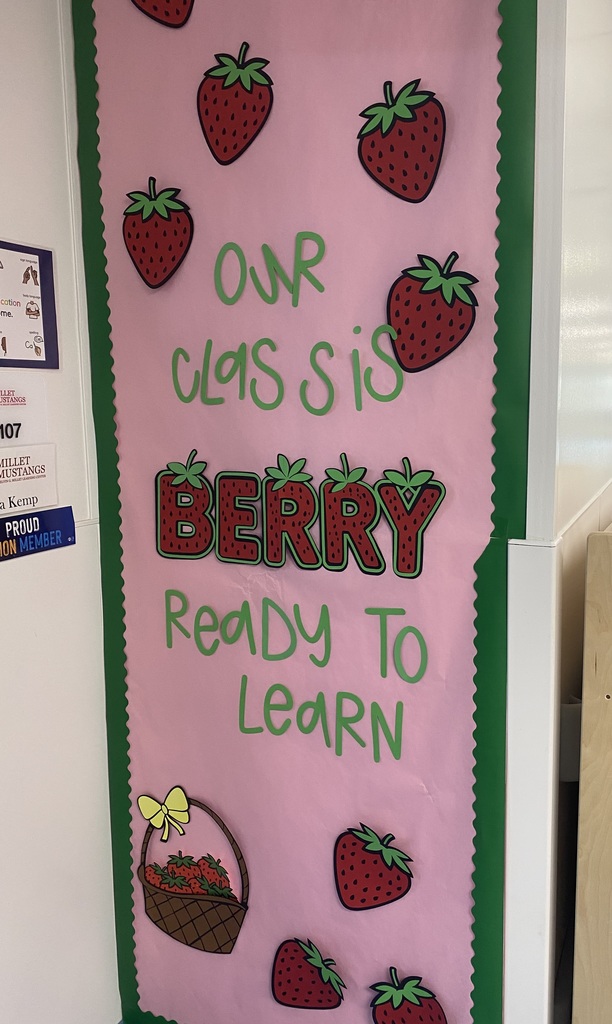 OUR
CLASS IS
BERRY
READY TO
LEARN
cation
me.
107
MILLET
MUSTANGS
a Kemp
PROUD
ION MEMBER